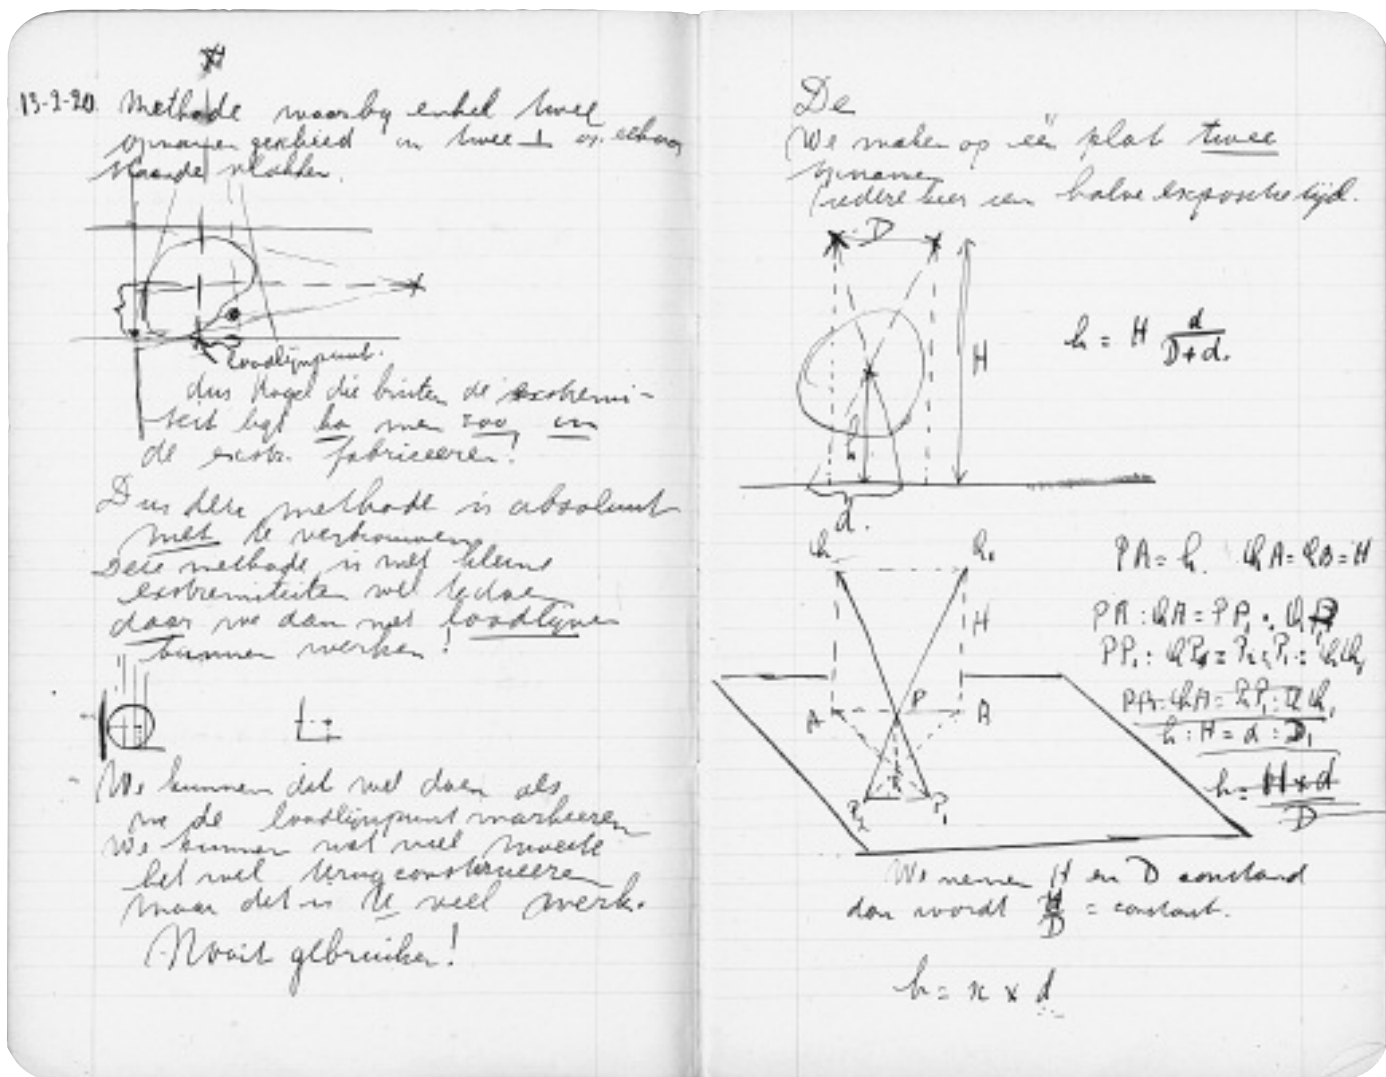 13-2-20. Methode waarbij enkel twee
opnamen geschied in twee ⊥ op elkaar
staande vlakken.
Loodlijnpunt.
dus kogel die buiten de extremi-
teit ligt kan men zoo in
de extr. fabriceeren!
Dus deze methode is absoluut
niet te vertrouwen
Deze methode is met kleine
extremiteiten wel te doen
daar we dan met loodlijnen
kunnen werken!
We kunnen dit wel doen als
we de loodlijnpunt markeeren
We kunnen met veel moeite
het wel terugconstrueeren
maar dit is te veel werk.
Nooit gebruiken!
De
We maken op één plat twee
opnamen
iedere keer een halve expositietijd.
D
H
h = H d / D + d.
h
d.
PA = h.
H
A
P
P₂
P₁
h : H = d : D₁
h = H x d / D
We nemen H en D constand
dan wordt H/D = constant.
h = x × d